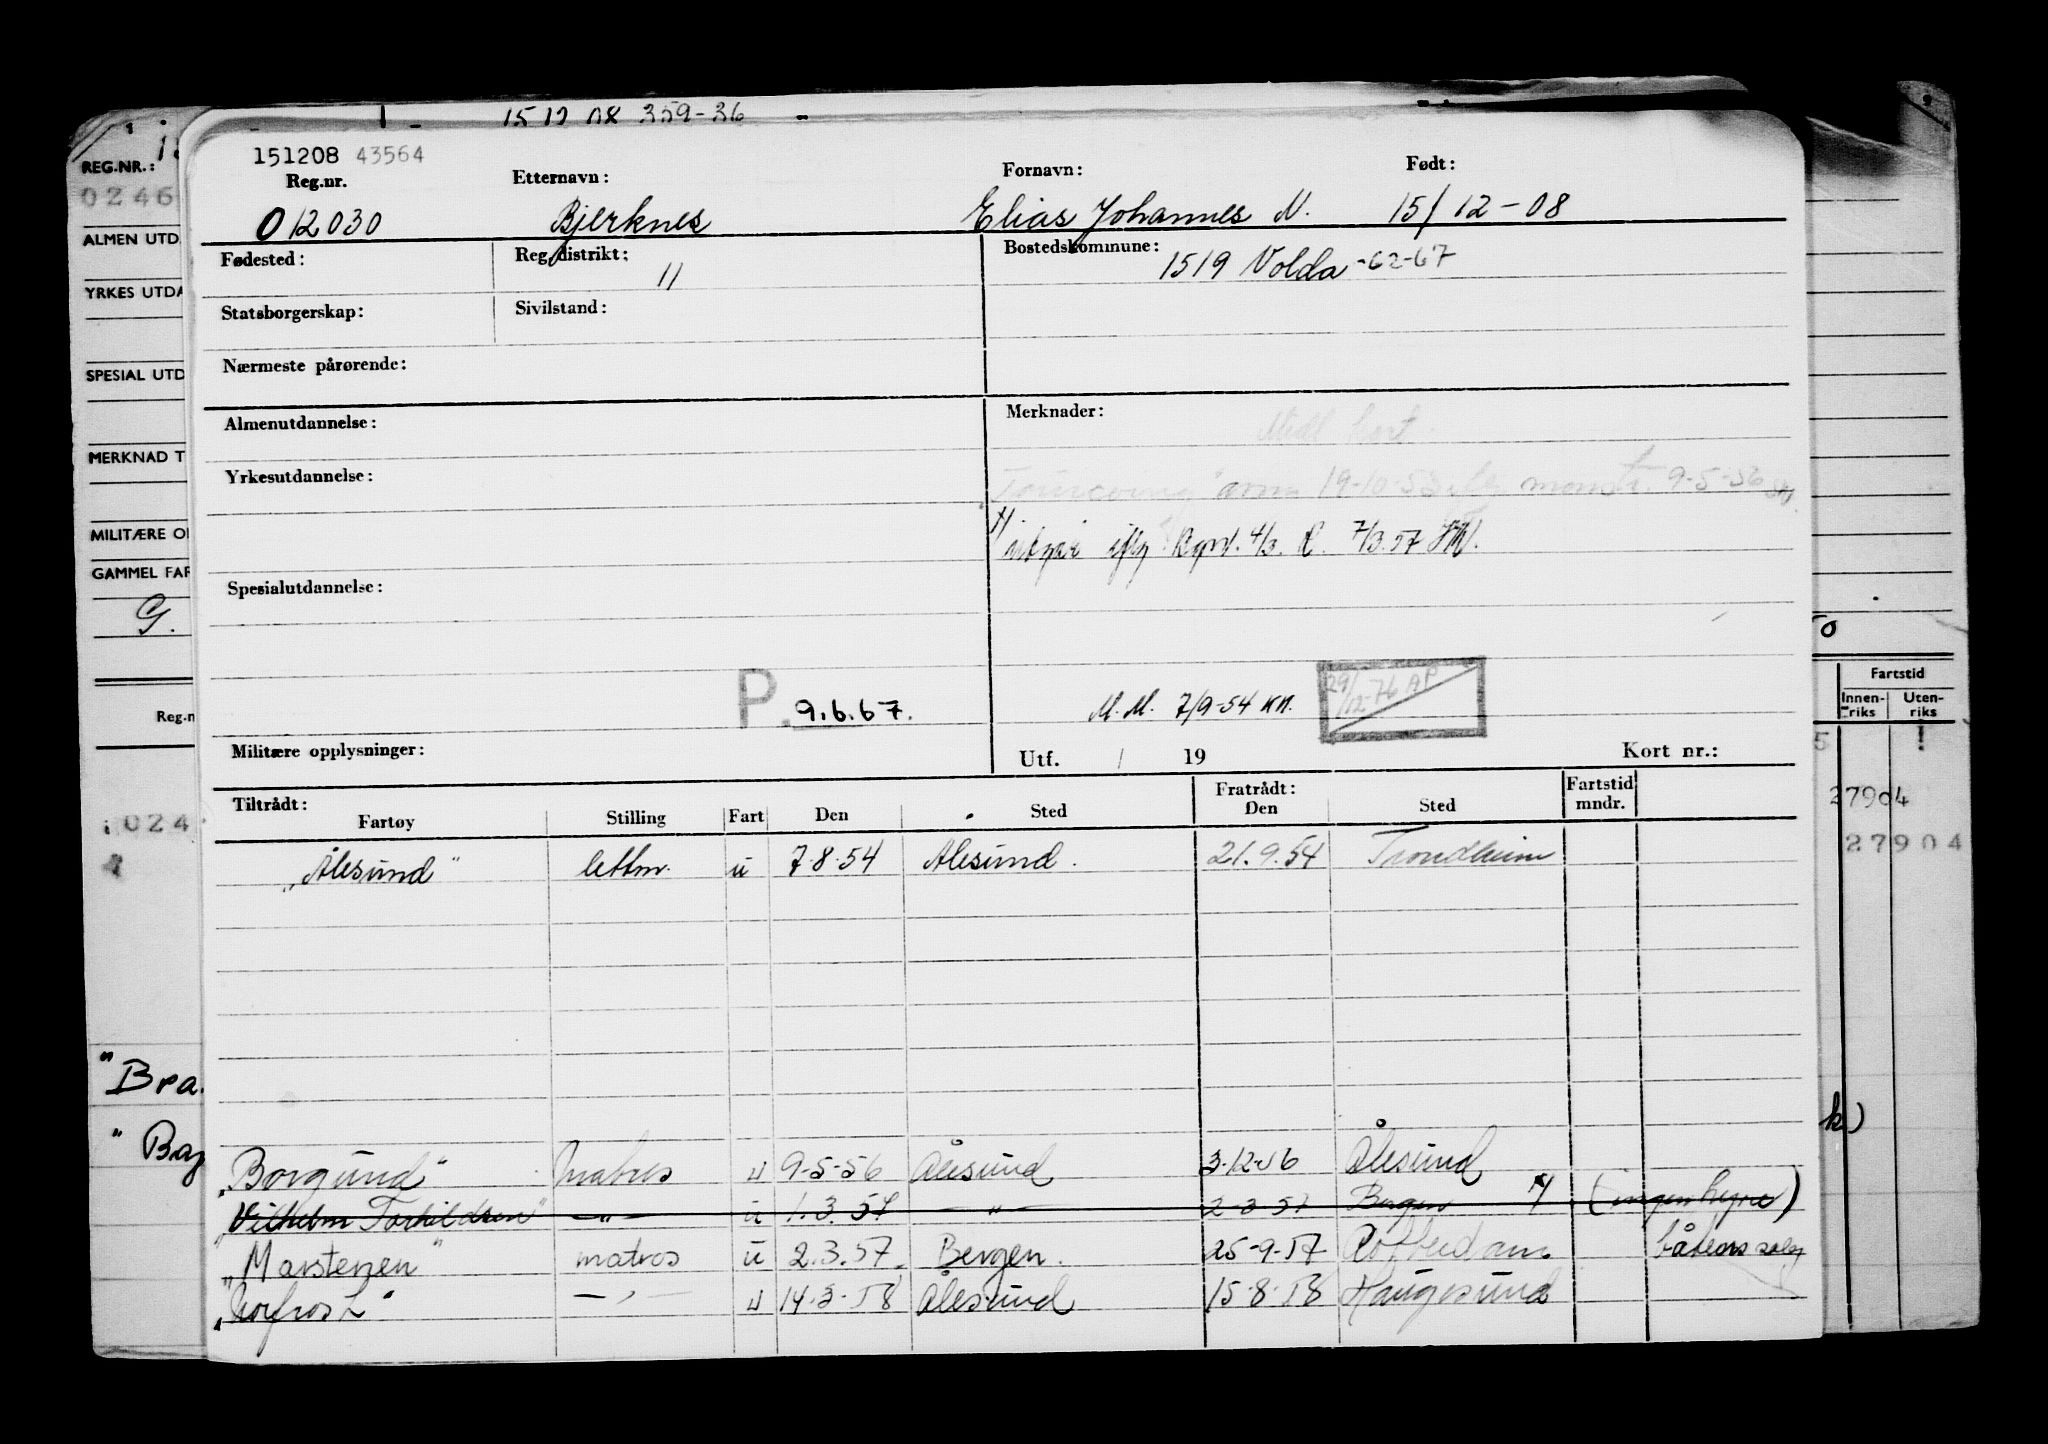 15 12 08 359-36
151208 43564
Reg.nr. Etternavn: Fornavn: Født:
012030 Bjerknes Elias Johannes N. 15/12-08
Fødested: Reg.distrikt: 11 Bostedskommune: 1519 Volda -62-67
Statsborgerskap: Sivilstand:
Nærmeste pårørende:
Almenutdannelse: Merknader: Midl kort.
Yrkesutdannelse: 19-10-55 mønstr. 9-5-56
7/3.57
Spesialutdannelse:
P. 9.6.67. M.M. 7/9-54 KN. 29/12-76 AP
Militære opplysninger: Utf. / 19 Kort nr.:
Tiltrådt: Fratrådt: Fartstid
Fartøy Stilling Fart Den Sted Den Sted mndr.
"Ålesund" lettm. u 7-8-54 Ålesund. 21.9.54 Trondheim
"Borgund" matros u 9-5-56 Ålesund 3-12-56 Ålesund
"Vilhelm Torkildsen" —"— u 1.3.57 —"— 2-3-57 Bergen (ingen hyre)
"Marstenen" matros u 2.3.57. Bergen. 25-9-57 Rotterdam båtens salg
"Norfrost" —"— u 14-3-58 Ålesund 15-8-58 Haugesund
REG.NR.:
0246
ALMEN UTD.
YRKES UTDA
SPESIAL UTD
MERKNAD T
MILITÆRE O
GAMMEL FAR
G.
Reg.n
024
"Bra.
"Bag
Fartstid
Innen-riks Uten-riks
27904
27904
k)